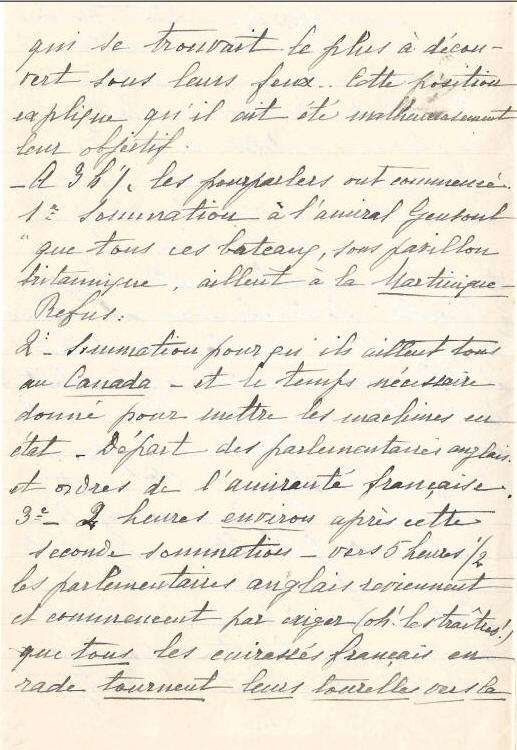 qui se trouvait le plus à décou-
vert sous leurs feux.. Cette position
explique qu'il ait été malheureusement
leur objectif.
- A 3h 1/2 les pourparlers ont commencé.
1re Sommation à l'amiral Gensoul
"que tous ces bateaux, sous pavillon
britannique, aillent à la Martinique -
Refus.
2e - Sommation pour qu'ils aillent tous
au Canada - et le temps nécessaire
donné pour mettre les machines en
état - Départ des parlementaires anglais.
et ordres de l'amirauté française.
3e - 2 heures environ après cette
seconde sommation - vers 5 heures 1/2
les parlementaires anglais reviennent
et commencent par exiger (oh! les traîtres!)
que tous les cuirassés français en
rade tournent leurs tourelles vers la